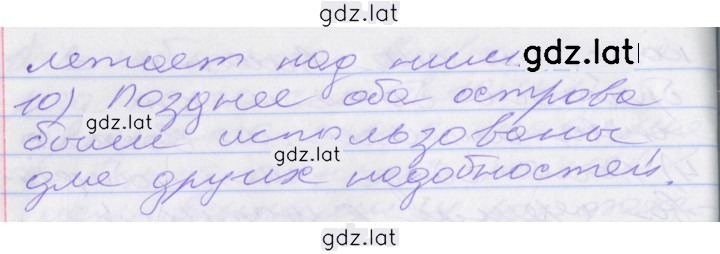 gdz.lat
летает над ним. gdz.lat
10) Позднее оба острова
gdz.lat
были использованы
gdz.lat
для других надобностей.
gdz.lat